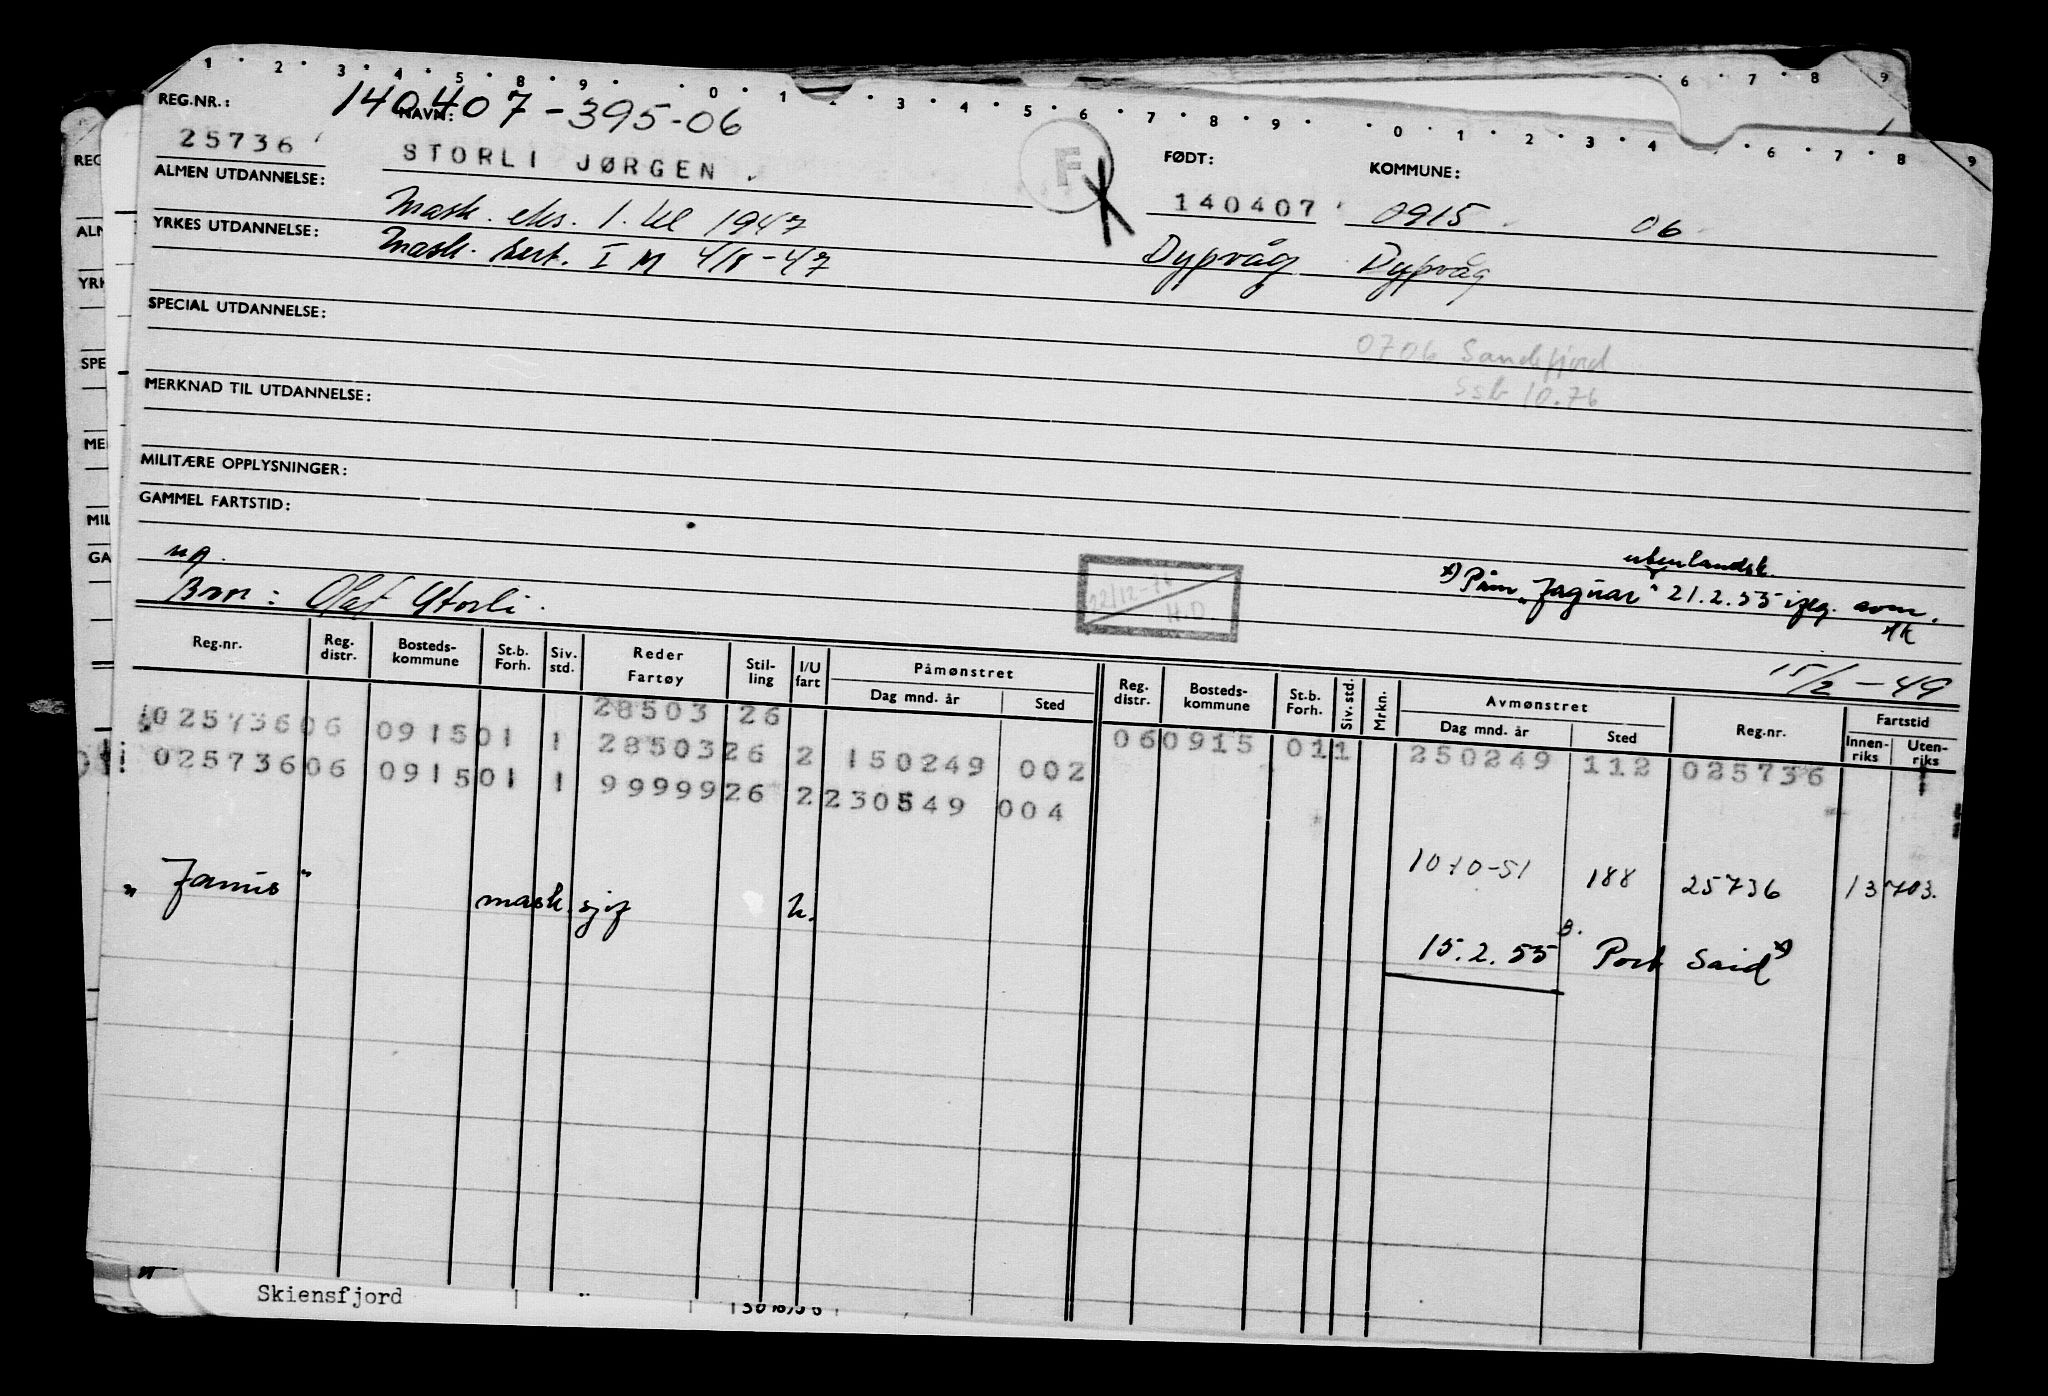 1 · 2 · 3 · 4 · 5 · 8 · 9 · 0 · 1 2 · 3 · 4 · 5 · 6 · 7 · 8 · 9 · 0 · 1 · 2 · 3 · 4 · 6 · 7 · 8 · 9
6 · 7 · 8 · 9
REG.NR.: NAVN: 140407-395-06
25736 STORLI JØRGEN. F FØDT: KOMMUNE:
140407 0915 06
ALMEN UTDANNELSE: Mask. eks. 1. kl 1947
YRKES UTDANNELSE: Mask. sert. I M 4/8-47 Dypvåg Dypvåg
SPECIAL UTDANNELSE:
0706 Sandefjord
Ssb 10.76
MERKNAD TIL UTDANNELSE:
MILITÆRE OPPLYSNINGER:
GAMMEL FARTSTID:
utenlandsk.
x) Påm "Jaguar" 21.2.55 iflg. avm.
Bror: Olaf Storli.
H.D.
15/2-49
Reg.nr. Reg. distr. Bosteds-kommune St.b. Forh. Siv. std. Reder Fartøy Stil-ling I/U fart Påmønstret Dag mnd. år Sted Reg. distr. Bosteds-kommune St.b. Forh. Siv. std. Mrkn. Avmønstret Dag mnd. år Sted Reg.nr. Fartstid Innen-riks Uten-riks
28503 26
02573606 091501 1 2850326 2 150249 002 060915 011 250249 112 025736
02573606 091501 1 9999926 2 230549 004
10-10-51 188 25736 13703.
"Janus" mask. sjef u. 15.2.55 Port Said x)
Skiensfjord